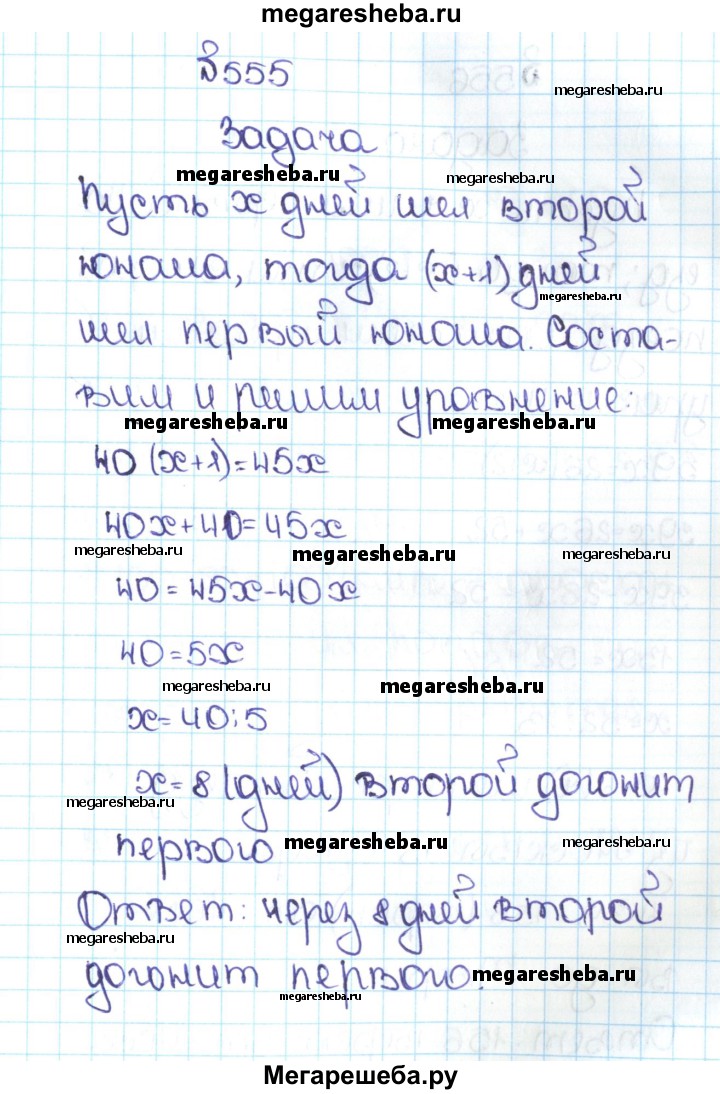 megaresheba.ru
№555
megaresheba.ru
Задача
megaresheba.ru megaresheba.ru
Пусть x дней шел второй
юноша, тогда (x+1) дней
megaresheba.ru
шел первый юноша. Соста-
вим и решим уравнение:
megaresheba.ru megaresheba.ru
40 (x+1)=45x
40x+40=45x
megaresheba.ru megaresheba.ru megaresheba.ru
40=45x-40x
40=5x
megaresheba.ru megaresheba.ru
x=40:5
x=8 (дней) второй догонит
megaresheba.ru
первого
megaresheba.ru megaresheba.ru
Ответ: через 8 дней второй
megaresheba.ru
догонит первого.
megaresheba.ru
megaresheba.ru
Мегарешеба.ру